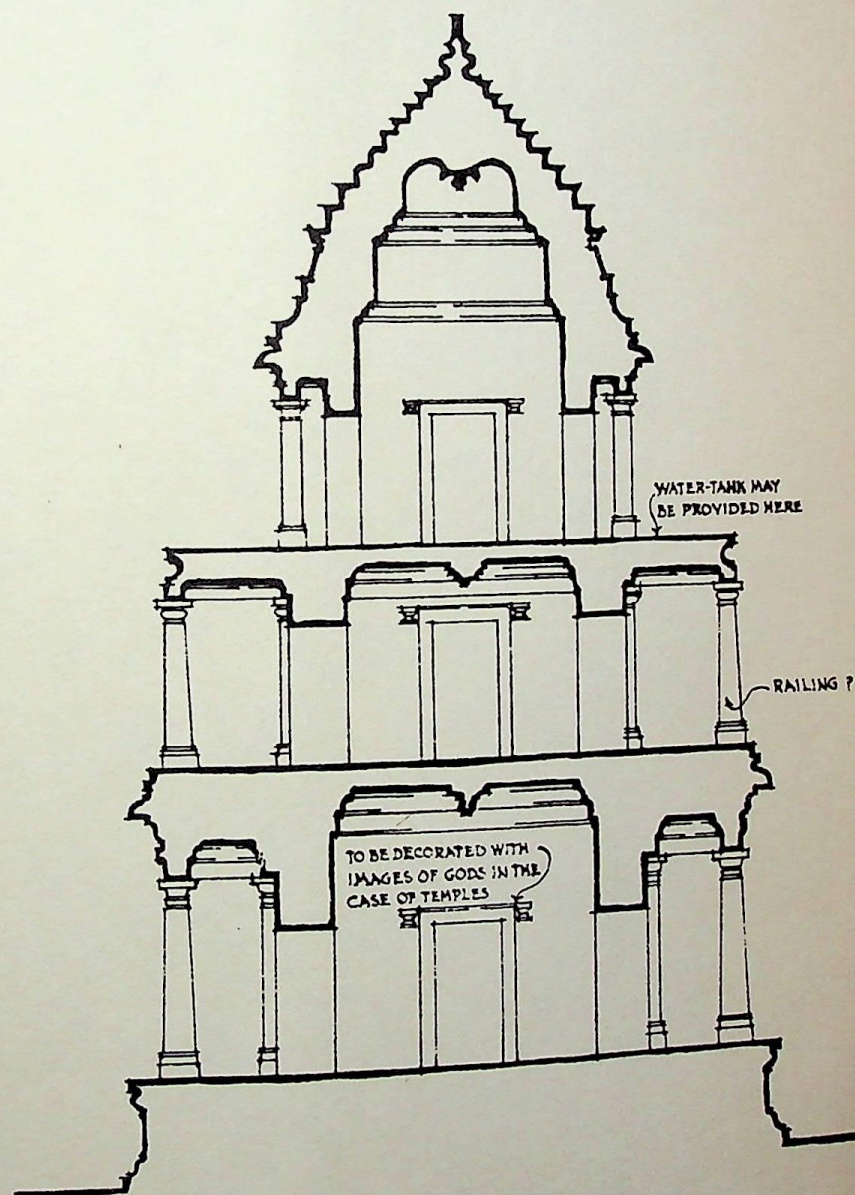 WATER-TANK MAY
BE PROVIDED HERE
RAILING ?
TO BE DECORATED WITH
IMAGES OF GODS IN THE
CASE OF TEMPLES